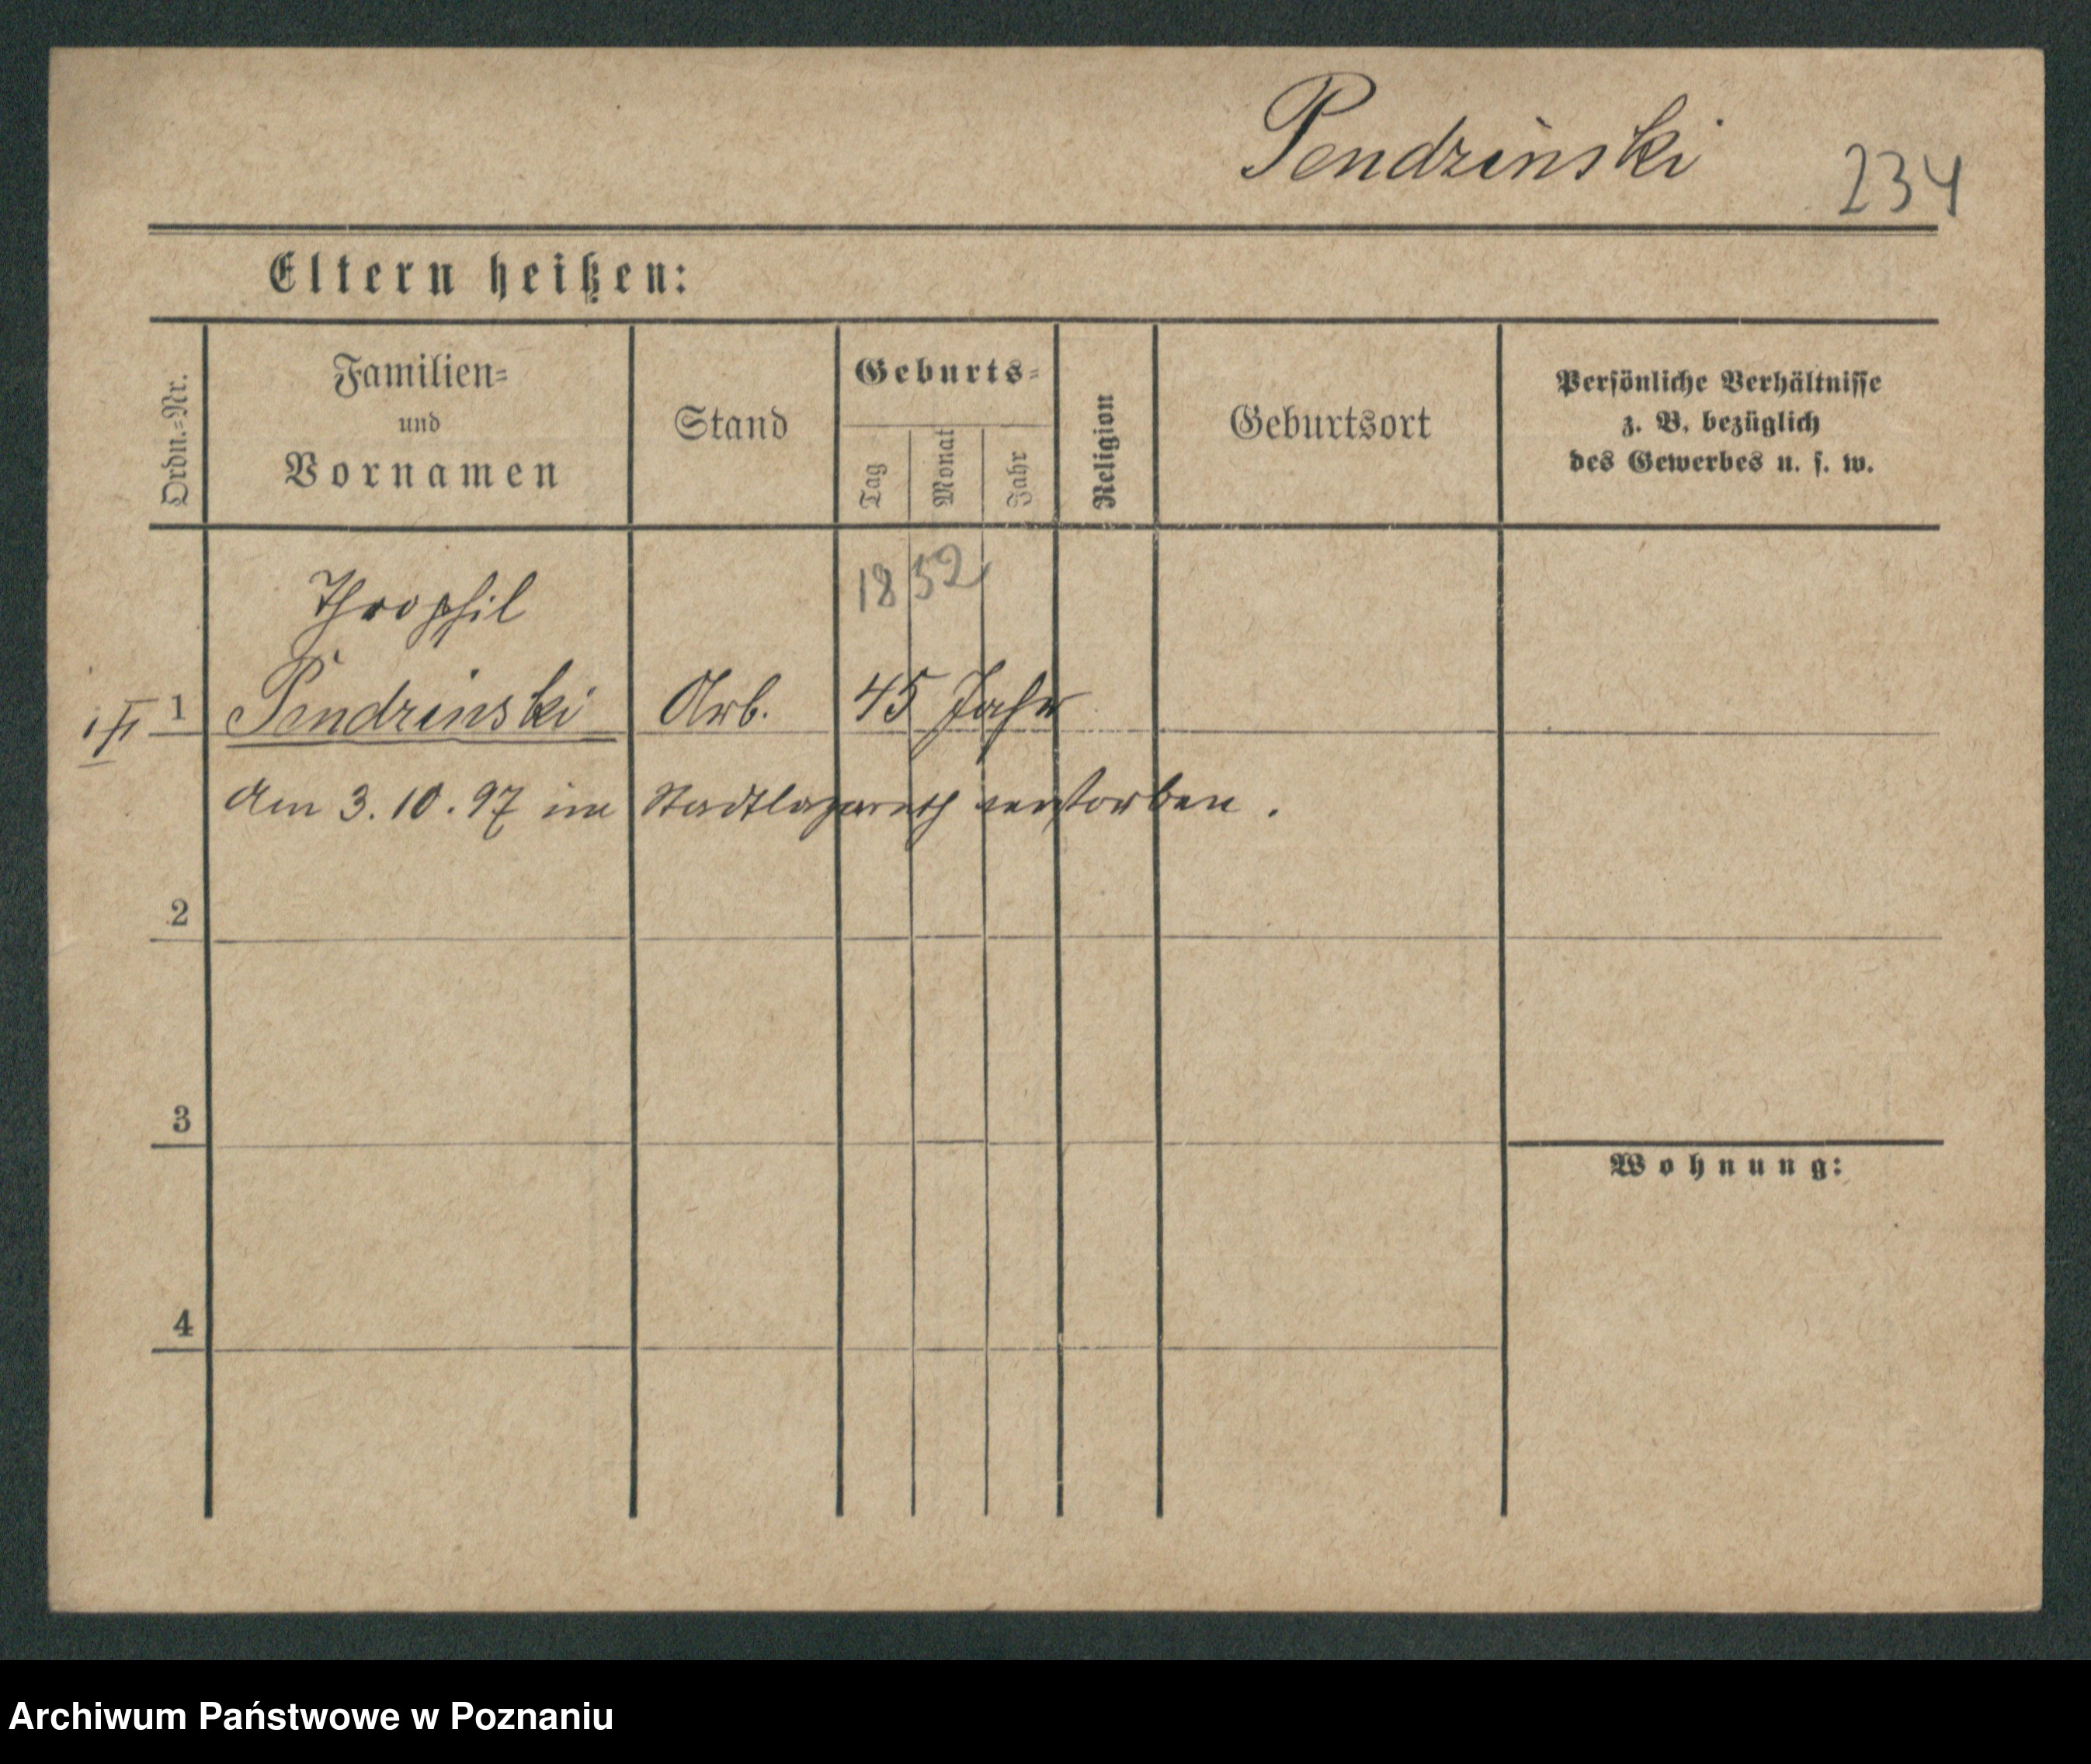 Pendzinski 234
Eltern heißen:
Ordn.=Nr.
Familien=
und
Vornamen
Stand
Geburts=
Tag
Monat
Jahr
Religion
Geburtsort
Persönliche Verhältnisse
z. B. bezüglich
des Gewerbes u. s. w.
Theophil
1852
1 Pendzinski Arb. 45 Jahr
Am 3.10.97 im Stadtlazareth verstorben.
2
3
Wohnung:
4
Archiwum Państwowe w Poznaniu